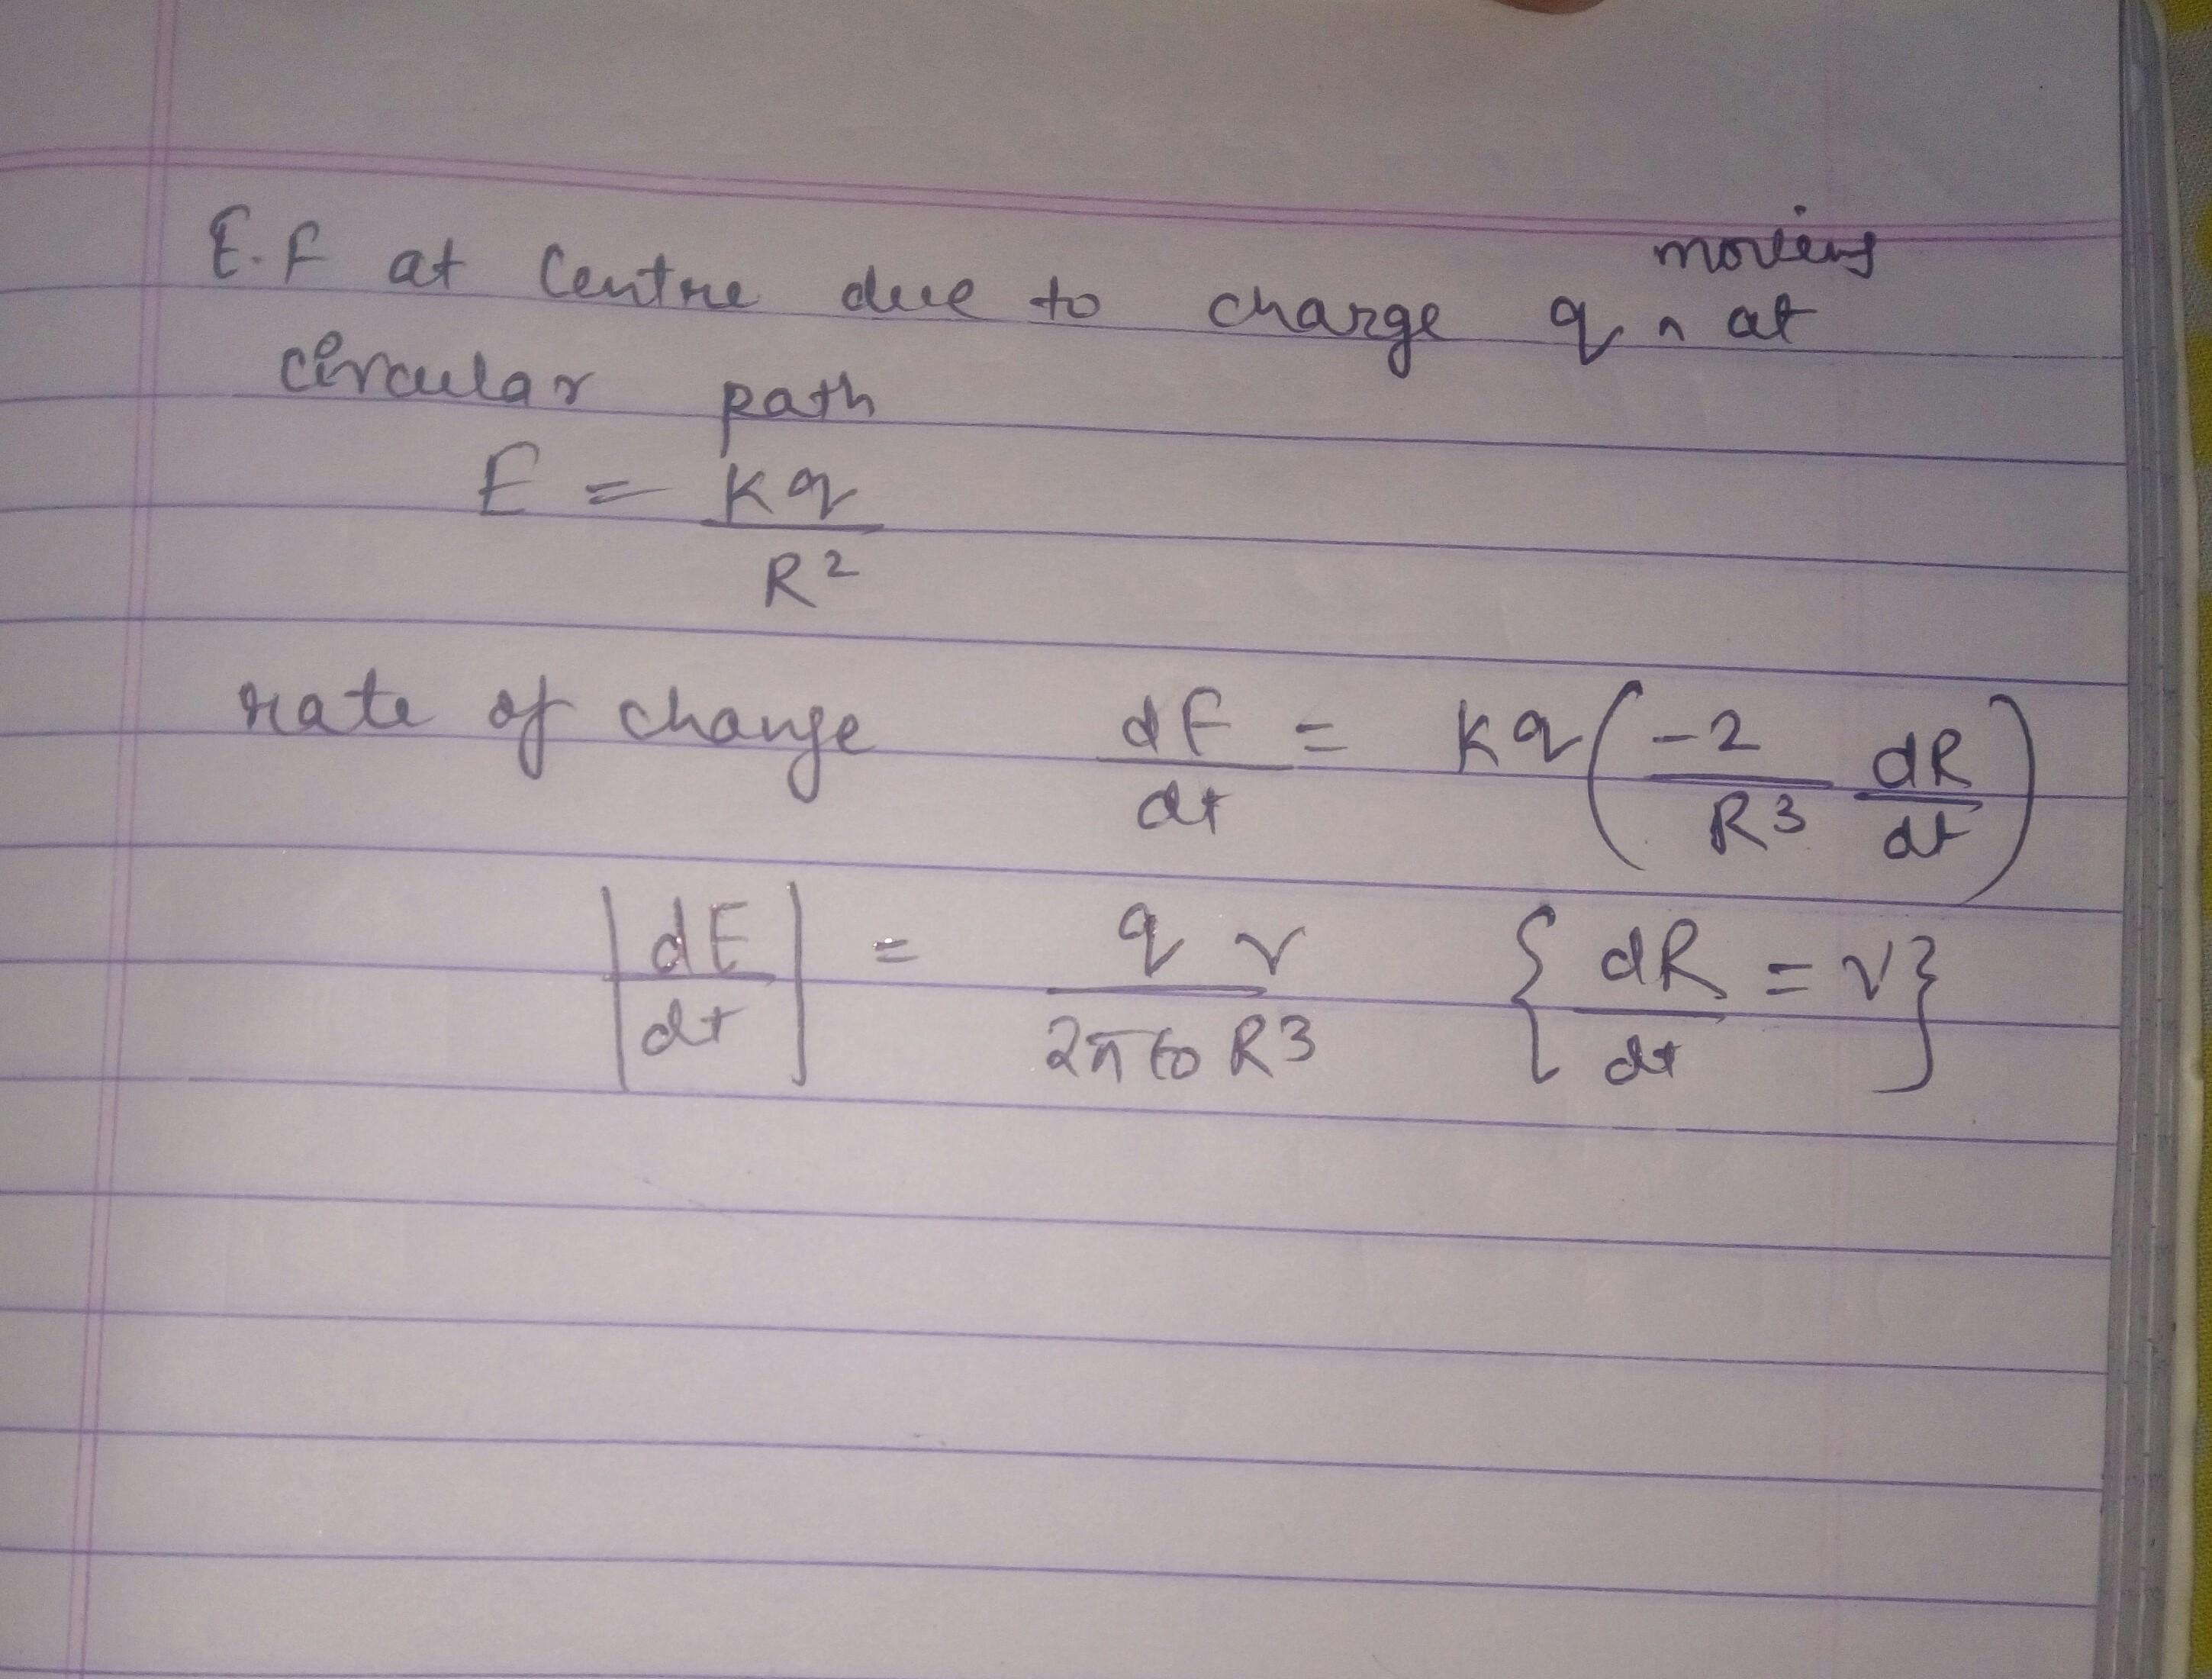 E.F at Centre due to charge q ^ moving at
circular path
E = Kq / R²
rate of change dE/dt = Kq (-2/R³ dR/dt)
|dE/dt| = qv / 2π ϵo R3 {dR/dt = v}